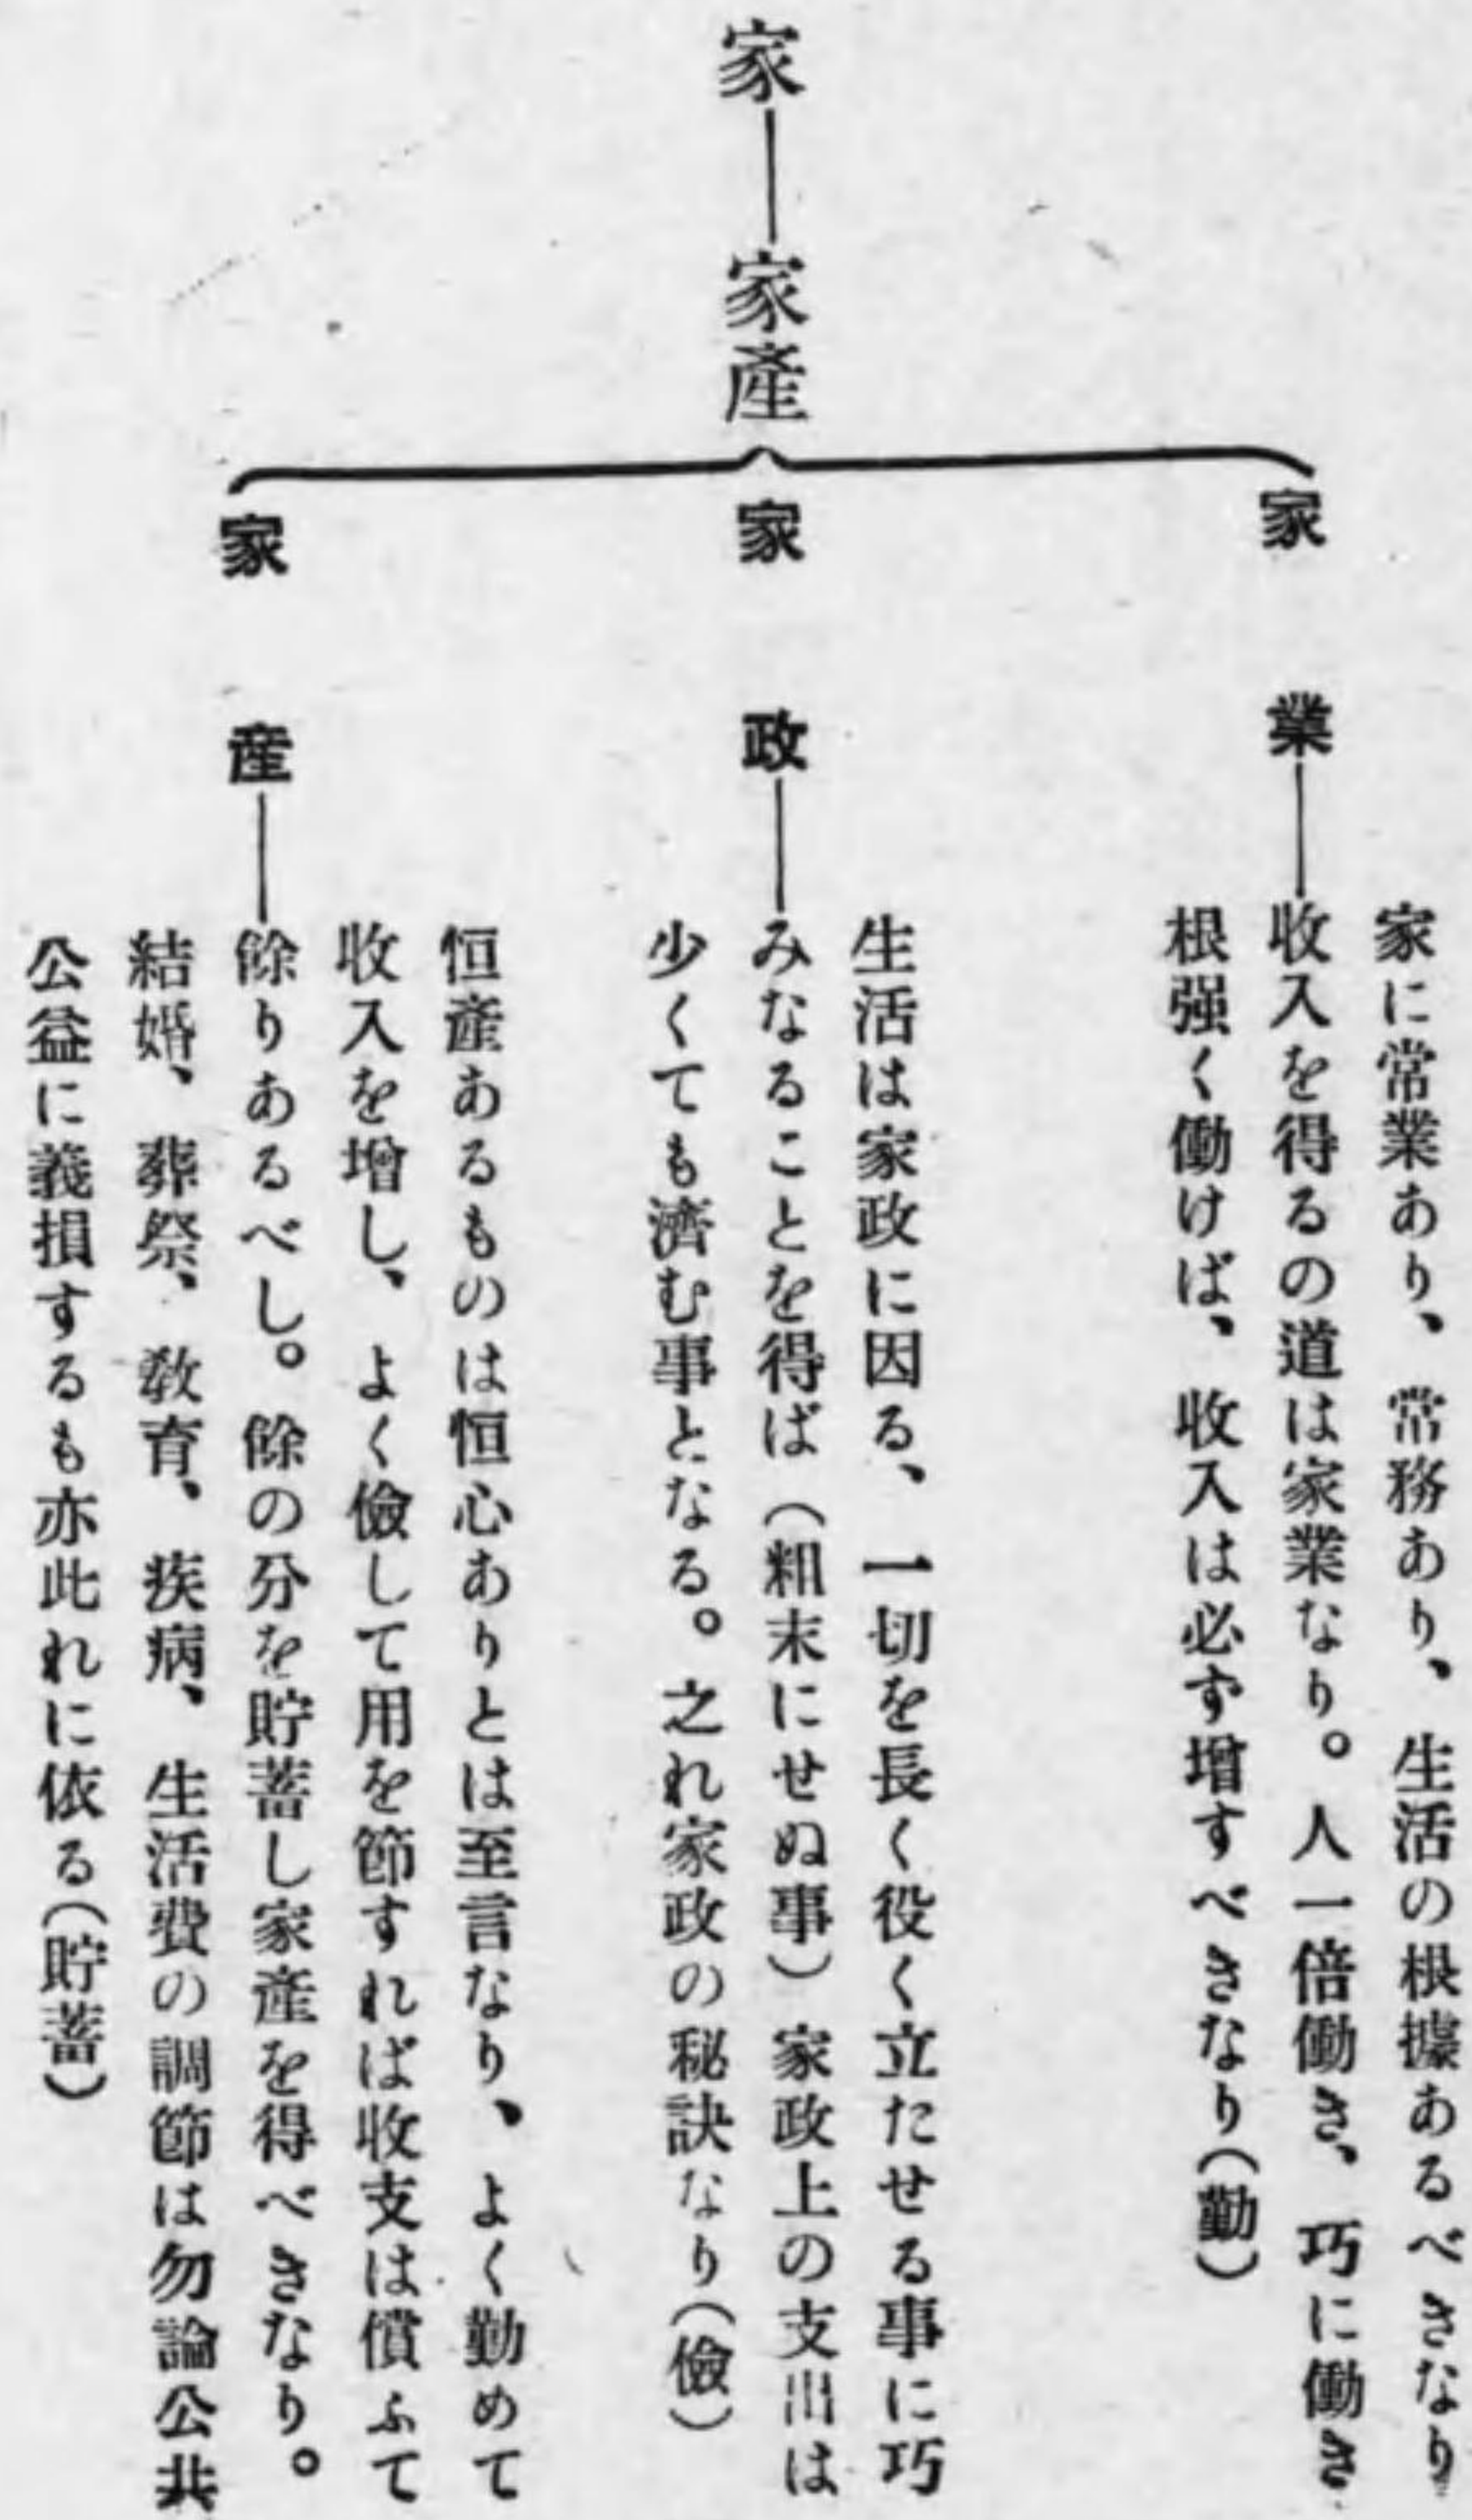 家――家產
家業
家に常業あり、常務あり、生活の根據あるべきなり
收入を得るの道は家業なり。人一倍働き、巧に働き
根强く働けば、收入は必ず增すべきなり(勤)
家政
生活は家政に因る、一切を長く役く立たせる事に巧
みなることを得ば(粗末にせぬ事)家政上の支出は
少くても濟む事となる。之れ家政の秘訣なり(儉)
家産
恒產あるものは恒心ありとは至言なり、よく勤めて
收入を增し、よく儉して用を節すれば收支は償ふて
餘りあるべし。餘の分を貯蓄し家産を得べきなり。
結婚、葬祭、敎育、疾病、生活費の調節は勿論公共
公益に義損するも亦此れに依る(貯蓄)